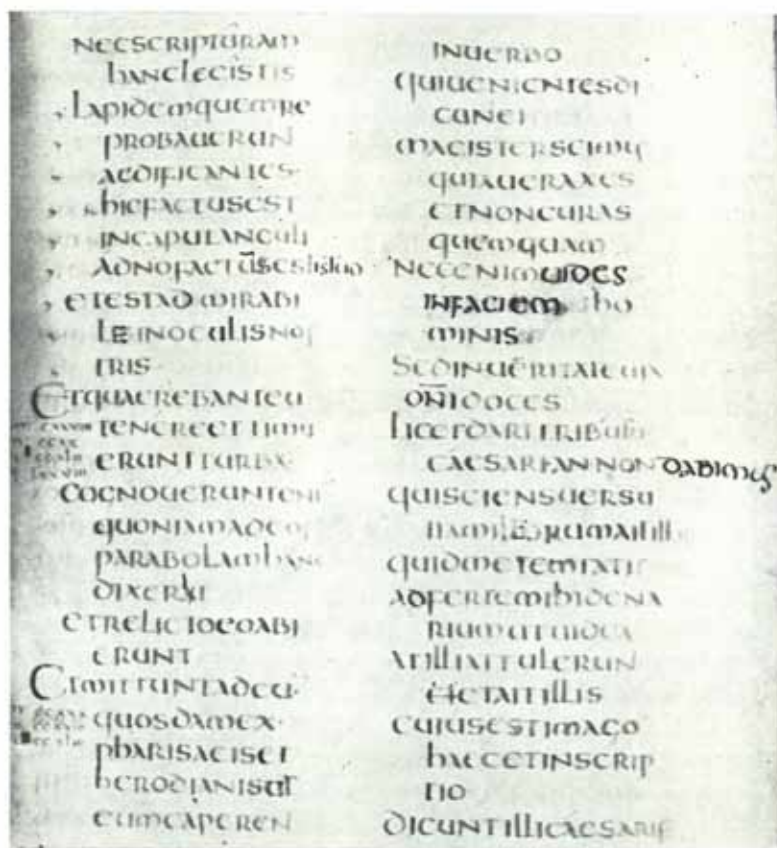 NECSCRIPTURAM
hANCLEGISTIS
LAPIDEMQUEMRE
PROBAUERUN
AEDIFICANTES
hICFACTUSEST
INCAPUTANGULI
ADNOFACTUSEST
ETESTADMIRABI
LEINOCULISNOS
TRIS
ETQUAEREBANTEU
TENEREETTIMU
ERUNTTURBA
COGNOUERUNTENI
QUONIAMADEOS
PARABOLAMhANC
DIXERIT
ETRELICTOEOABI
ERUNT
ETMITTUNTADEU
QUOSDAMEX
PhARISAEISET
hERODIANISUT
EUMCAPEREN
INUERBO
QUIUENIENTESDI
CUNEI
MAGISTERSCIMUS
QUIAUERAXES
ETNONCURAS
QUEMQUAM
NECENIMUIDES
INFACIEM hO
MINIS
SEDINUERITATEUIA
DNIDOCES
LICETDARITRIBUTU
CAESARIANNONDABIMUS
QUISCIENSUERSU
TIAMILLORUMAITILLIS
QUIDMETEMTATIS
ADFERTEMIhIDENA
RIUMUTUIDEA
ATILLIATTULERUN
ETAITILLIS
CUIUSESTIMAGO
hAECETINSCRIP
TIO
DICUNTILLICAESARIS